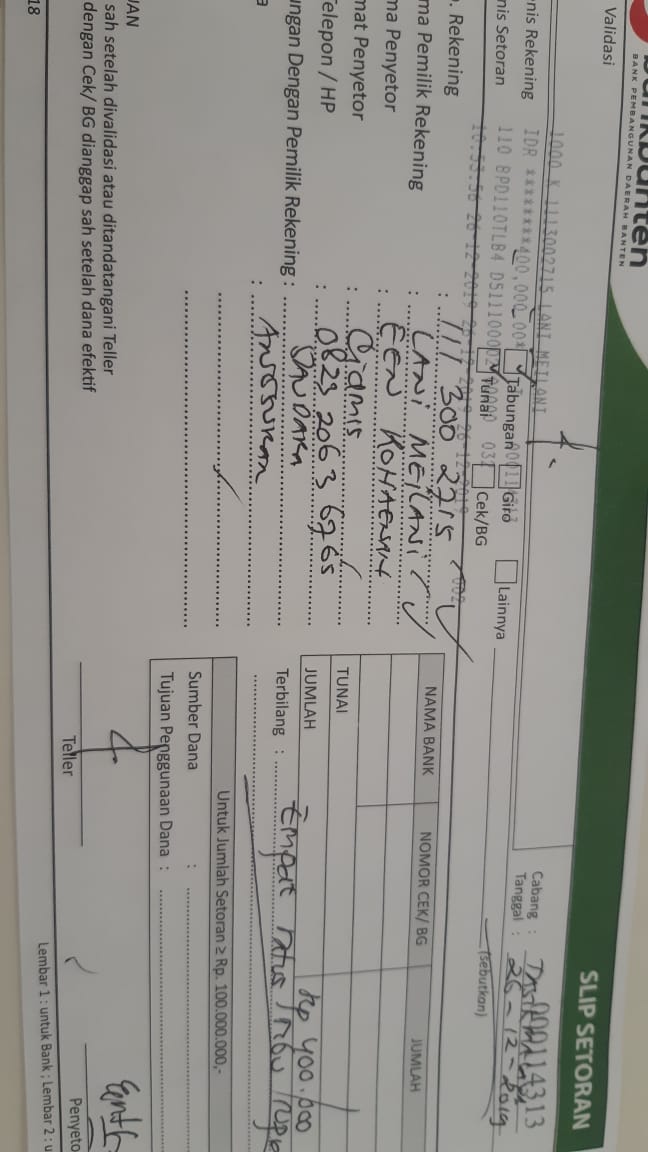 bankbanten
BANK PEMBANGUNAN DAERAH BANTEN
SLIP SETORAN
Validasi
1000 K 1113002715 LANI MEILANI
IDR *********400,000.00*
110 BPD110TLB4 DS111000
10.53.56 26-12-2019 26-12-2019 26-12-2019
Cabang :
000114313
Tanggal : 26-12-2019
nis Rekening
Tabungan
Giro
Lainnya
(sebutkan)
nis Setoran
Tunai
Cek/BG
. Rekening : 111 300 2715
ma Pemilik Rekening : LANI MEILANI
ma Penyetor : EEN ROHAENAH
mat Penyetor : Ciamis
elepon / HP : 0823 2063 6765
ungan Dengan Pemilik Rekening : SAUDARA
a : ANGSURAN
NAMA BANK
NOMOR CEK/ BG
JUMLAH
TUNAI
JUMLAH
Rp 400.000
Terbilang : Empat ratus ribu rupia
Untuk Jumlah Setoran ≥ Rp. 100.000.000,-
Sumber Dana :
Tujuan Penggunaan Dana :
UAN
sah setelah divalidasi atau ditandatangani Teller
dengan Cek/ BG dianggap sah setelah dana efektif
Teller
Penyeto
18
Lembar 1 : untuk Bank ; Lembar 2 : u